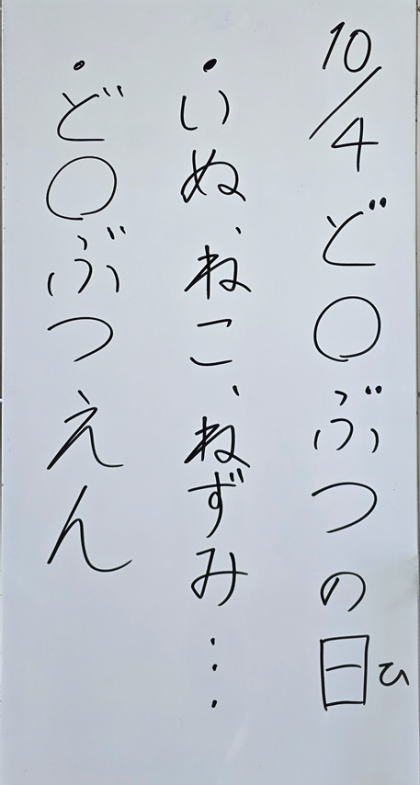 10/4 ど〇ぶつの日ひ
・いぬ、ねこ、ねずみ…
・ど〇ぶつえん